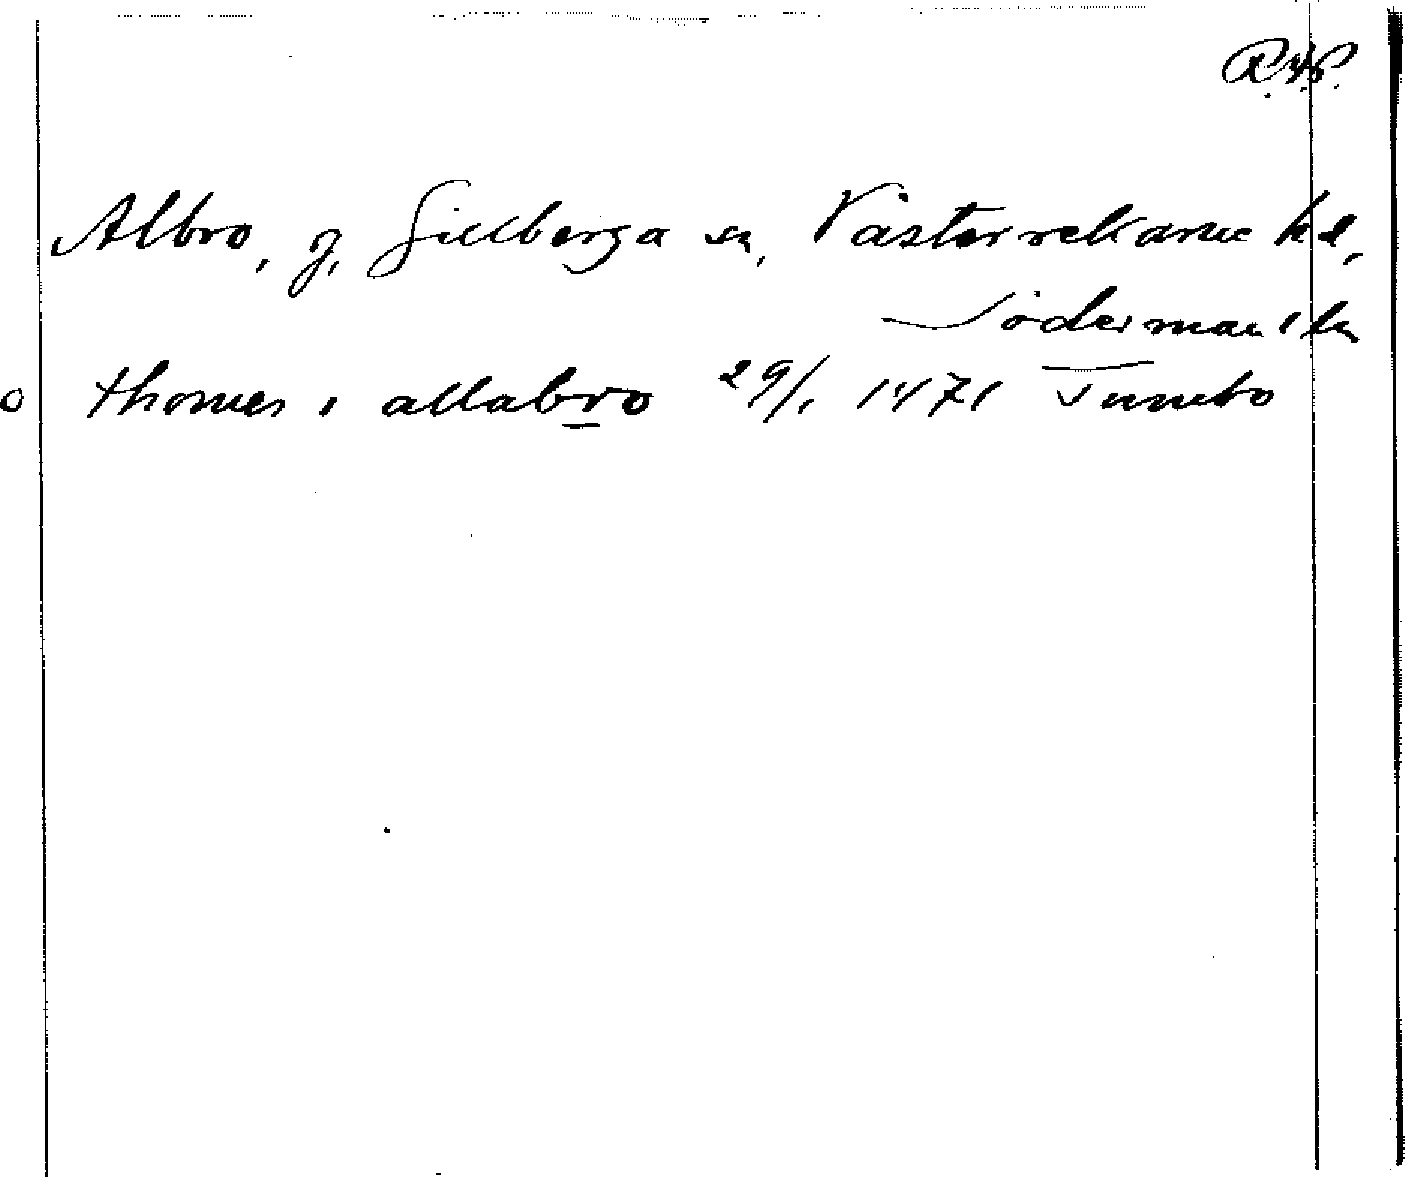 R.A.P.
Albro, g, Gillberga sn, Västerrekarne hd,
Södermanl. ln
o thomes i allabro 29/1 1471 Tumbo